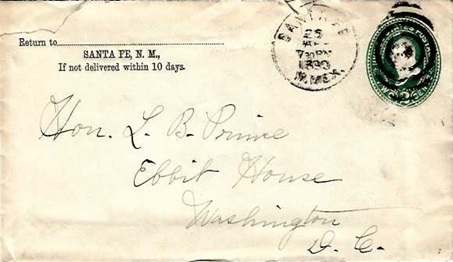 Return to
SANTA FE, N. M.,
If not delivered within 10 days.
SANTA FE
25
730PM
1890
N.MEX.
Hon. L. B. Prince
Ebbit House
Washington
D. C.